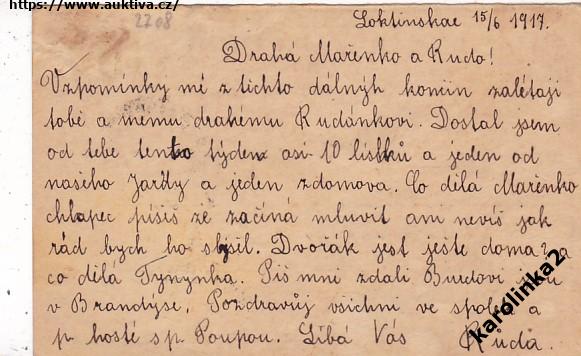 https://www.auktiva.cz/
2208
Loktinskae 15/6 1917.
Drahá Mařenko a Rudo!
Vzpomínky mé z tichto dálných končin zalétaji
tobě a mému drahému Rudánkovi. Dostal jsem
od tebe tento týden asi 10 lístků a jeden od
našeho Jardy a jeden zdomova. Co dělá Mařenko
chlapec píšiš zě začíná mluvit ani nevíš jak
rád bych ho slyšil. Dvořák jest ješte doma? a
co dělá Tynynka. Piš mni zdali Burdovi jsou
v Brandýse. Pozdravůj všichni ve spolek a
p. hosté s p. Poupou. Líbá Vás Rùda.
karolinka2